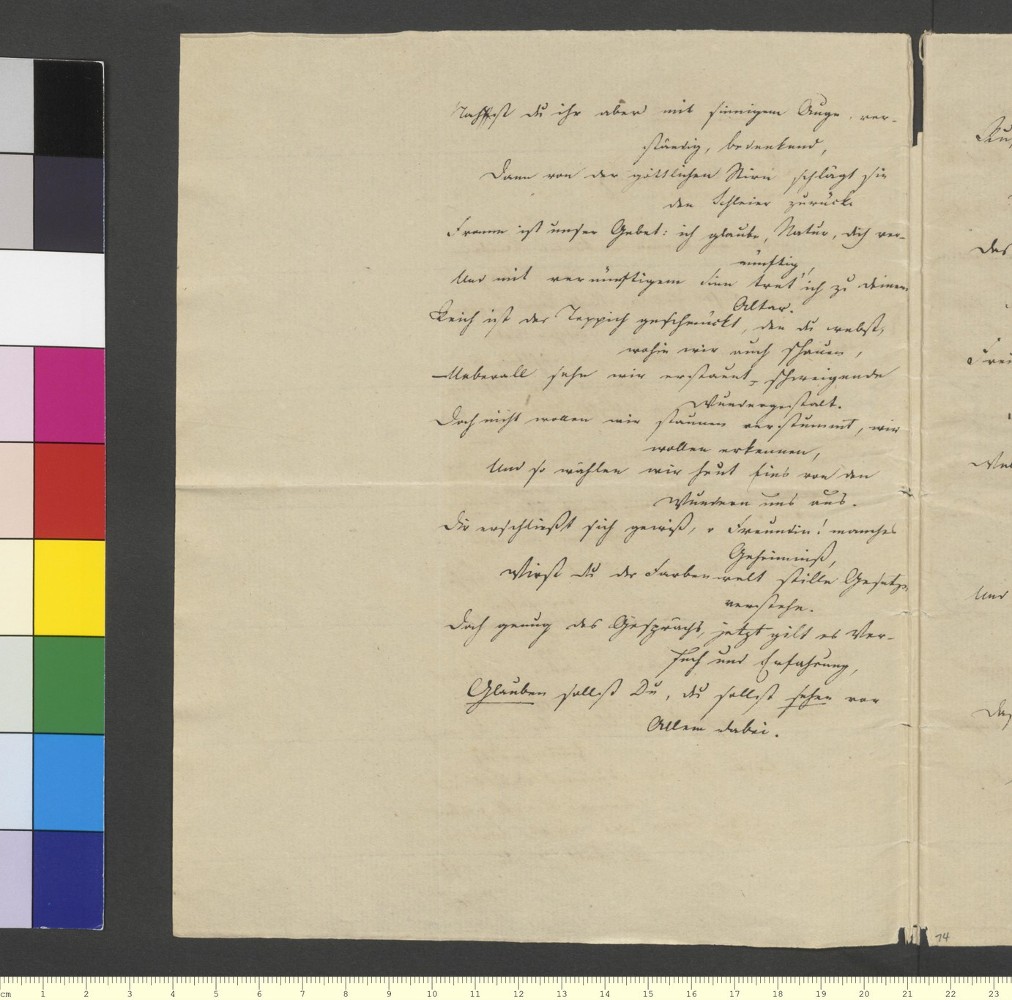 Nahest du ihr aber mit sinnigem Auge, ver-
ständig, bedenkend,
Dann von der göttlichen Stirn schlägt sie
den Schleier zurück.
Fromm ist unser Gebet: ich glaube, Natur, dich ver-
nünftig,
Und mit vernünftigem Sinn tret' ich zu deinem
Altar.
Reich ist der Teppich geschmückt, den du webst,
wohin wir auch schauen,
Ueberall sehn wir erstaunt, schweigende
Wundergestalt.
Doch nicht wollen wir staunen verstummt, wir
wollen erkennen,
Und so wählen wir heut Eins von den
Wundern uns aus.
Dir erschließt sich gewiß, o Freundin! manches
Geheimniß,
Wirst du der Farbenwelt stille Gesetze
verstehn.
Doch genug des Gesprächs, jetzt gilt es Ver-
such und Erfahrung,
Glauben sollst Du, du sollst sehen vor
Allem dabei.
Des
Und
14